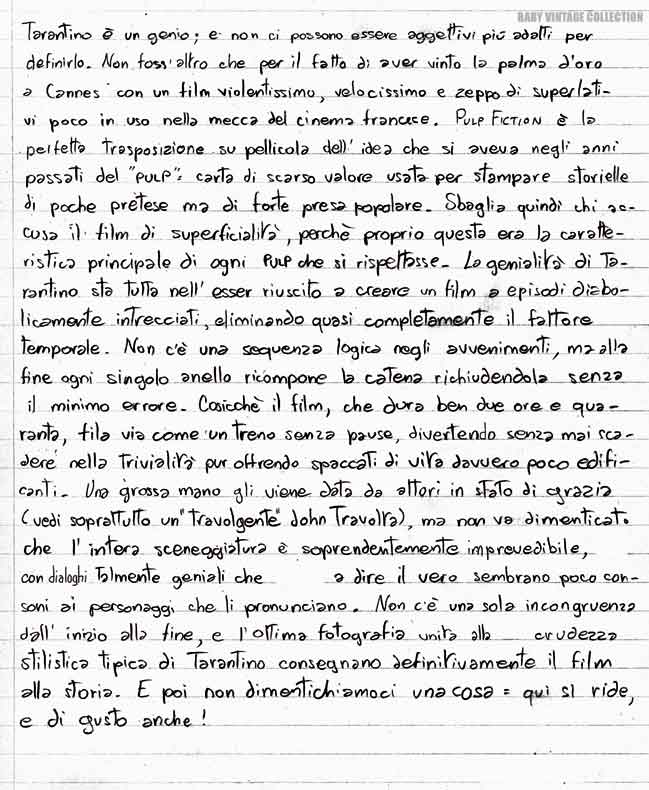 BABY VINTAGE COLLECTION
Tarantino è un genio; e non ci possono essere aggettivi più adatti per
definirlo. Non foss'altro che per il fatto di aver vinto la palma d'oro
a Cannes con un film violentissimo, velocissimo e zeppo di superlati-
vi poco in uso nella mecca del cinema francece. PULP FICTION è la
perfetta trasposizione su pellicola dell'idea che si aveva negli anni
passati del "PULP": carta di scarso valore usata per stampare storielle
di poche pretese ma di forte presa popolare. Sbaglia quindi chi ac-
cusa il film di superficialità, perchè proprio questa era la caratte-
ristica principale di ogni PULP che si rispettasse. La genialità di Ta-
rantino sta tutta nell'esser riuscito a creare un film a episodi diabo-
licamente intrecciati, eliminando quasi completamente il fattore
temporale. Non c'è una sequenza logica negli avvenimenti, ma alla
fine ogni singolo anello ricompone la catena richiudendola senza
il minimo errore. Cosicchè il film, che dura ben due ore e qua-
ranta, fila via come un treno senza pause, divertendo senza mai sca-
dere nella trivialità pur offrendo spaccati di vita davvero poco edifi-
canti. Una grossa mano gli viene data da attori in stato di grazia
(vedi soprattutto un "travolgente" John Travolta), ma non va dimenticato
che l'intera sceneggiatura è soprendentemente imprevedibile,
con dialoghi talmente geniali che a dire il vero sembrano poco con-
soni ai personaggi che li pronunciano. Non c'è una sola incongruenza
dall'inizio alla fine, e l'ottima fotografia unita alla crudezza
stilistica tipica di Tarantino consegnano definitivamente il film
alla storia. E poi non dimentichiamoci una cosa: qui si ride,
e di gusto anche!